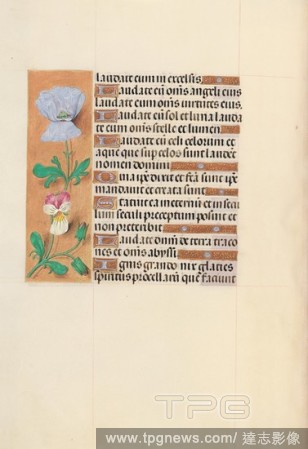 laudate eum in excelsis
Laudate eū oms angeli eius
laudate eum oms uirtutes eius
Laudate eū sol et luna lauda
te eum oms stelle et lumen
Laudate eū celi celorum et
aque que sup celos sunt laudēt
nomen domini
Quia ipe dixit et facta sunt ipe
mandauit et creata sunt
Statuit ea in eternū et in secu
lum seculi preceptum posuit et
non preteribit
Laudate dnm de terra draco
nes et oms abyssi
Ignis grando nix glacies
spiritus procellarū que faciunt
TPG
www.tpgnews.com/ 達志影像